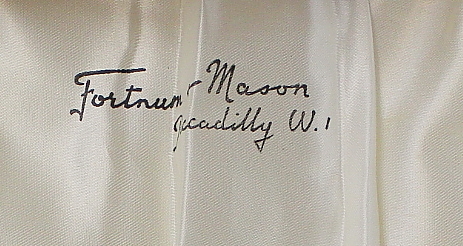 Fortnum Mason
Piccadilly W.1